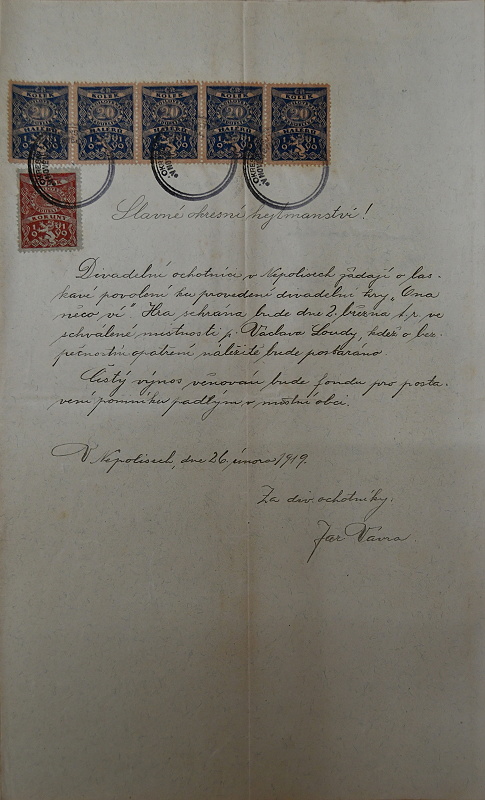 KOLEK KOLEK KOLEK KOLEK KOLEK
20 20 20 20 20
HALÉŘŮ HALÉŘŮ HALÉŘŮ HALÉŘŮ HALÉŘŮ
Slavné okresné hejtmanství!
Divadelní ochotníci v Nepolisech žádají o las-
kavé povolení ku provedení divadelní hry „Ona
něco ví“ Hra sehrána bude dne 2. března t. r. ve
schválené místnosti p. Václava Loudy, kdež o bez-
pečnostní opatření náležitě bude postaráno.
Čistý výnos věnován bude fondu pro posta-
vení pomníku padlým v místní obci.
V Nepolisech, dne 26. února 1919.
Za div. ochotníky:
Jar. Vávra.